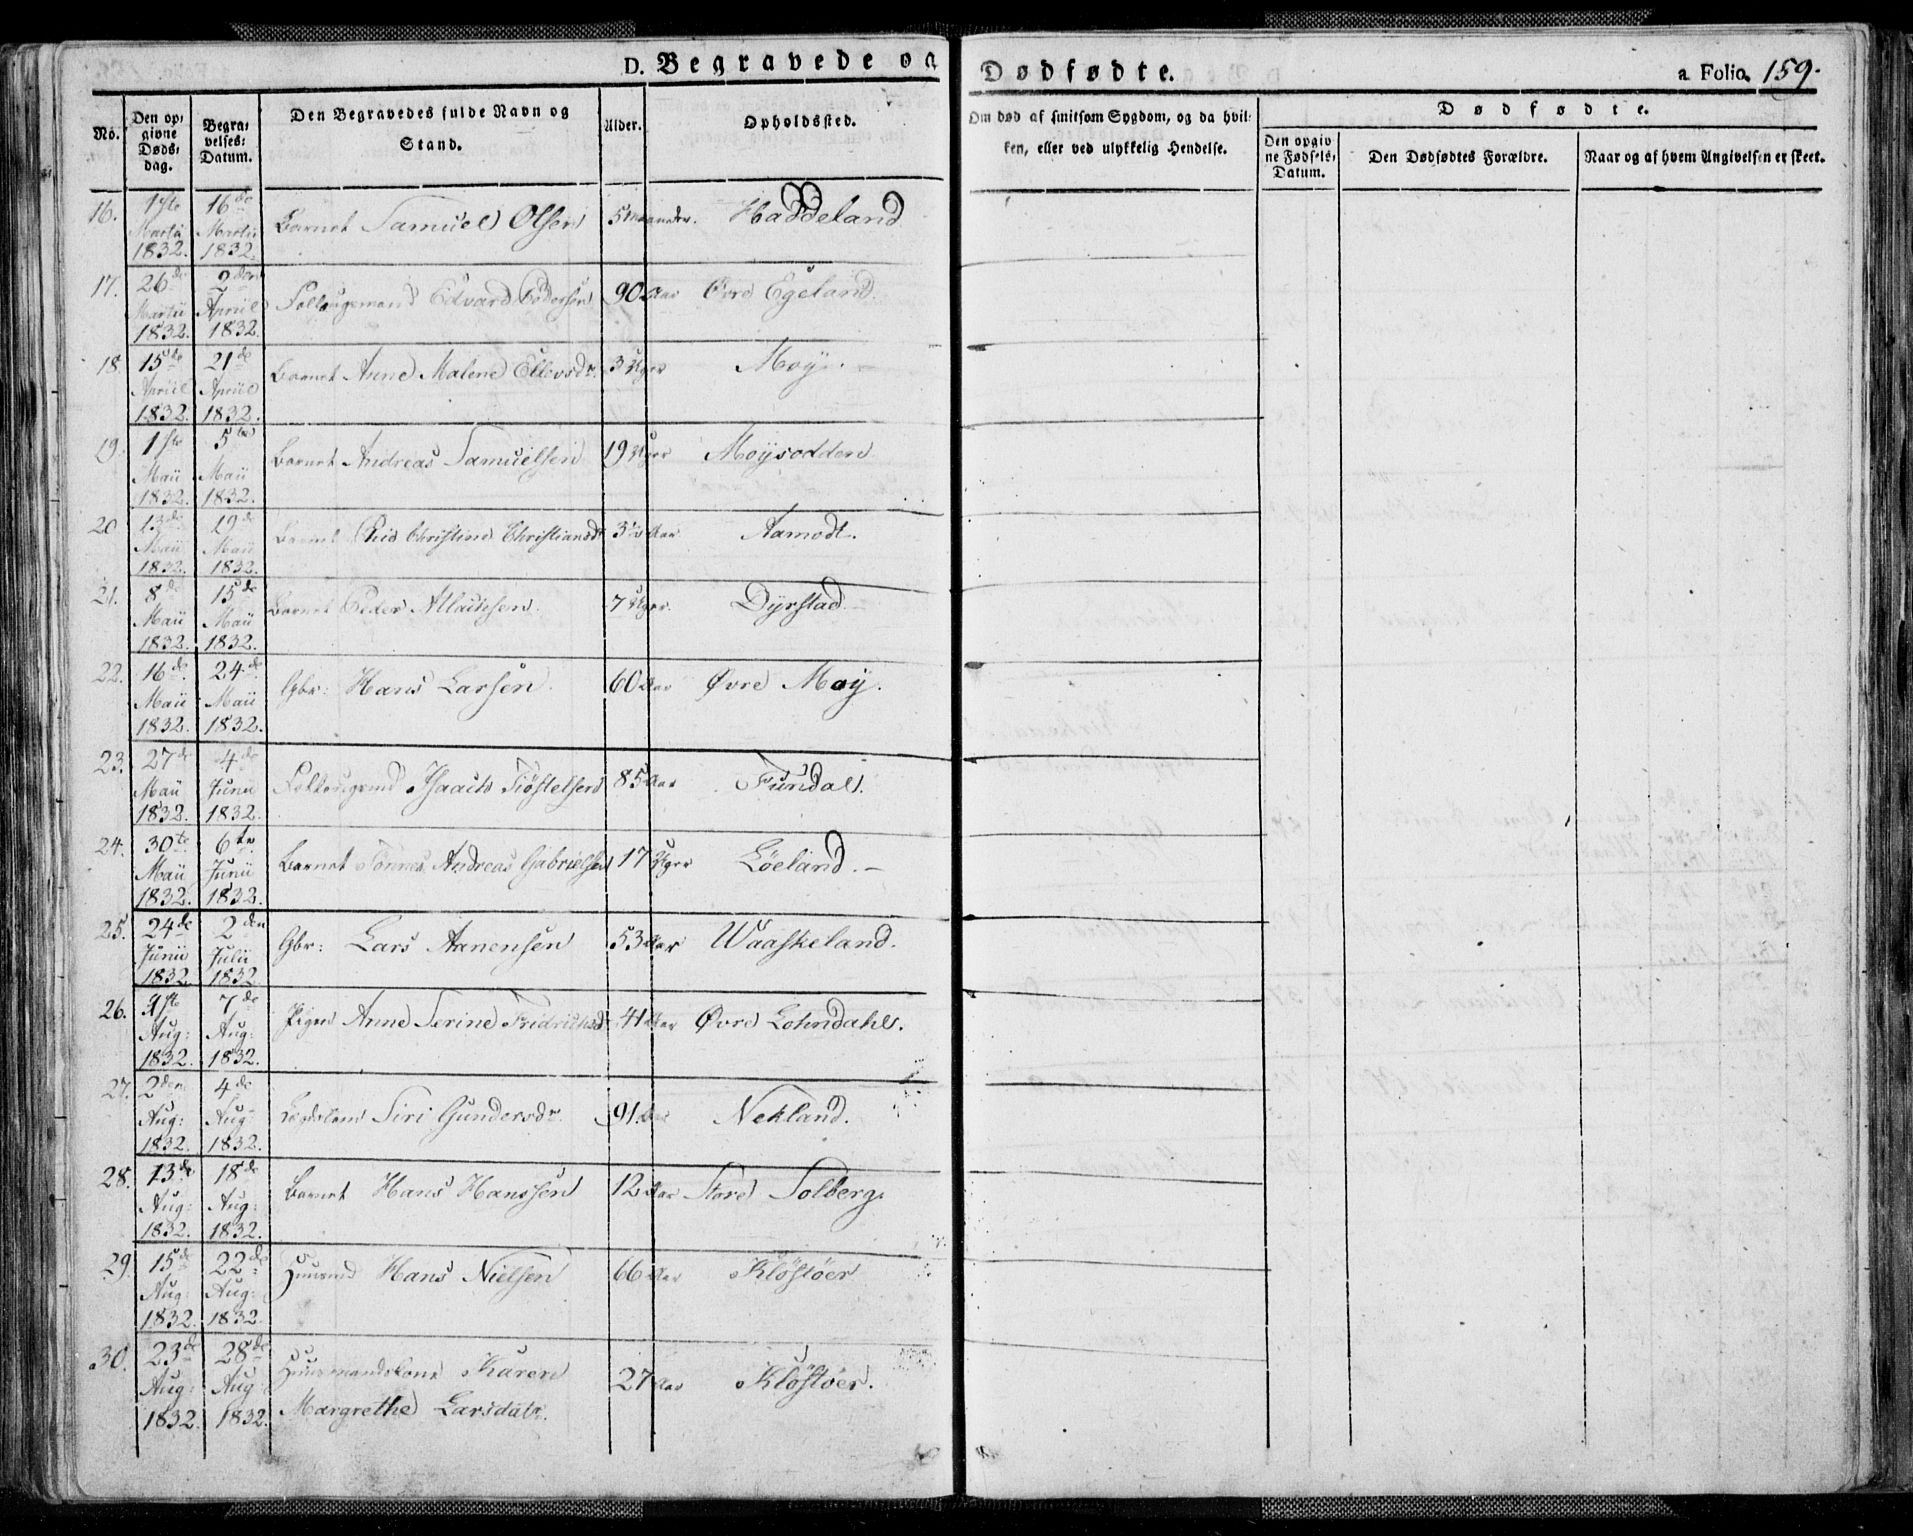 D. Begravede og Dødfødte. a Folio 159.
No. | Den opgivne Døds-dag. | Begravelses-Datum. | Den Begravedes fulde Navn og Stand. | Alder. | Opholdssted. | Om død af smitsom Sygdom, og da hvilken, eller ved ulykkelig Hendelse. | Dødfødte. | Den opgivne Fødsels-Datum. | Den Dødfødtes Forældre. | Naar og af hvem Angivelsen er skeet.
16. | 1ste Martii 1832. | 16de Martii 1832. | Barnet Samuel Olsen | 5 Maaneder. | Haddeland
17. | 26de Martii 1832. | 2den Apriil 1832. | Edvard Pedersen | 90 Aar | Øvre Egeland.
18 | 15de Apriil 1832. | 21de Apriil 1832. | Barnet Anne Malene Ellevsdr. | 3 Uger | Moÿ.
19. | 1ste Maii 1832. | 5te Maii 1832. | Barnet Andreas Samuelsen | 19 Uger | Moÿsodden
20 | 13de Maii 1832. | 19de Maii 1832. | Barnet Christine Christiansdr | Aar | Aamodt.
21. | 8de Maii 1832. | 15de Maii 1832. | Barnet Peder | 7 Uger. | Dÿrstad.
22. | 16de Maii 1832. | 24de Maii 1832. | Gbr: Hans Larsen. | 60 Aar | Øvre Moÿ.
23. | 27de Maii 1832. | 4de Junii 1832. | Isaach Tiøstelsen | 85 Aar | Fundal.
24. | 30te Maii 1832. | 6te Junii 1832. | Barnet Tønnes Andreas Gabrielsen | 17 Uger | Løeland.
25. | 24de Junii 1832. | 2den Julii 1832. | Gbr: Lars Aanensen | 53 Aar | Waaskeland.
26. | 1ste Aug: 1832. | 7de Aug: 1832. | Pigen Anne Serine Fridrichsdr | 41 Aar | Øvre Lohndahl.
27. | 2den Aug: 1832. | 4de Aug: 1832. | Lægdslem Siri Gundersdr. | 91. Aar | Nekland.
28. | 13de Aug: 1832. | 18de Aug: 1832. | Barnet Hans Hanssen | 12 Aar | Store Solberg.
29. | 15de Aug: 1832. | 22de Aug: 1832. | Huusmd Hans Nielsen | 66 Aar | Kløstøer
30. | 23de Aug: 1832. | 28de Aug: 1832. | Huusmandskone Karen Margrethe Larsdatr. | 27 Aar | Kløstøer.